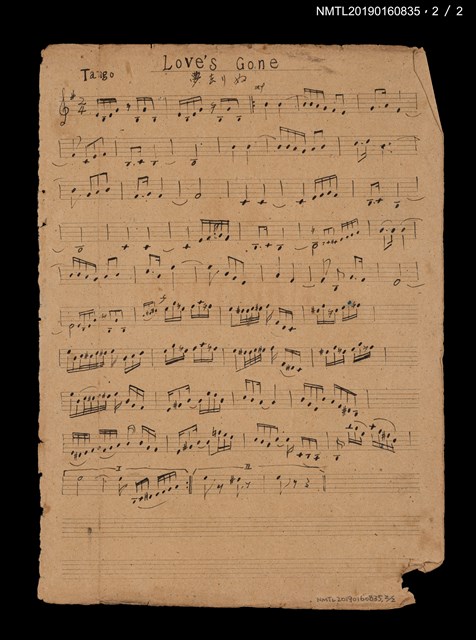 NMTL20190160835，2 / 2
Love's Gone
Tango
夢去りぬ
mf
2/4
f
I
II